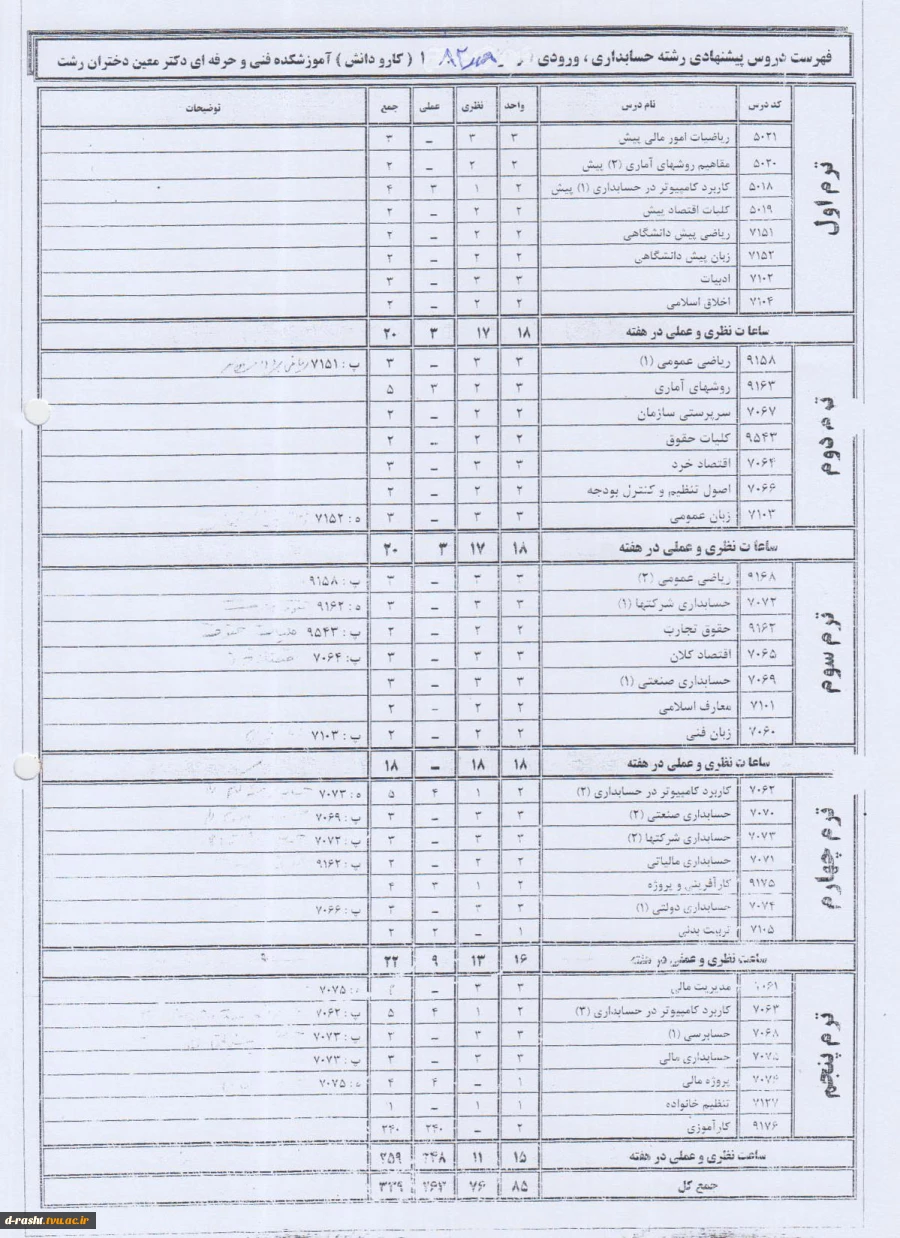 فهرست دروس پیشنهادی رشته حسابداری ، ورودی ۸۲ ۱ ( کارو دانش ) آموزشکده فنی و حرفه ای دکتر معین دختران رشت
کد درس نام درس واحد نظری عملی جمع توضیحات
ترم اول
۵۰۲۱ ریاضیات امور مالی پیش ۳ ۳ – ۳
۵۰۲۰ مفاهیم روشهای آماری (۲) پیش ۲ ۲ – ۲
۵۰۱۸ کاربرد کامپیوتر در حسابداری (۱) پیش ۲ ۱ ۳ ۴
۵۰۱۹ کلیات اقتصاد پیش ۲ ۲ – ۲
۷۱۵۱ ریاضی پیش دانشگاهی ۲ ۲ – ۲
۷۱۵۲ زبان پیش دانشگاهی ۲ ۲ – ۲
۷۱۰۲ ادبیات ۳ ۳ – ۳
۷۱۰۴ اخلاق اسلامی ۲ ۲ – ۲
ساعات نظری و عملی در هفته ۱۸ ۱۷ ۳ ۲۰
ترم دوم
۹۱۵۸ ریاضی عمومی (۱) ۳ ۳ – ۳ پ : ۷۱۵۱
۹۱۶۳ روشهای آماری ۳ ۲ ۳ ۵
۷۰۶۷ سرپرستی سازمان ۲ ۲ – ۲
۹۵۴۳ کلیات حقوق ۲ ۲ – ۲
۷۰۶۴ اقتصاد خرد ۳ ۳ – ۳
۷۰۶۶ اصول تنظیم و کنترل بودجه ۲ ۲ – ۲
۷۱۰۳ زبان عمومی ۳ ۳ – ۳ ه : ۷۱۵۲
ساعات نظری و عملی در هفته ۱۸ ۱۷ ۳ ۲۰
ترم سوم
۹۱۶۸ ریاضی عمومی (۲) ۳ ۳ – ۳ پ : ۹۱۵۸
۷۰۷۲ حسابداری شرکتها (۱) ۳ ۳ – ۳ ه : ۹۱۶۲
۹۱۶۲ حقوق تجارت ۲ ۲ – ۲ پ : ۹۵۴۳
۷۰۶۵ اقتصاد کلان ۳ ۳ – ۳ پ: ۷۰۶۴
۷۰۶۹ حسابداری صنعتی (۱) ۳ ۳ – ۳
۷۱۰۱ معارف اسلامی ۲ ۲ – ۲
۷۰۶۰ زبان فنی ۲ ۲ – ۲ پ : ۷۱۰۳
ساعات نظری و عملی در هفته ۱۸ ۱۸ – ۱۸
ترم چهارم
۷۰۶۲ کاربرد کامپیوتر در حسابداری (۲) ۲ ۱ ۴ ۵ ه : ۷۰۷۳
۷۰۷۰ حسابداری صنعتی (۲) ۳ ۳ – ۳ پ : ۷۰۶۹
۷۰۷۳ حسابداری شرکتها (۲) ۳ ۳ – ۳ پ : ۷۰۷۲
۷۰۷۱ حسابداری مالیاتی ۲ ۲ – ۲ پ : ۹۱۶۲
۹۱۷۵ کارآفرینی و پروژه ۲ ۱ ۳ ۴
۷۰۷۴ حسابداری دولتی (۱) ۳ ۳ – ۳ پ : ۷۰۶۶
۷۱۰۵ تربیت بدنی ۱ – ۲ ۲
ساعت نظری و عملی در هفته ۱۶ ۱۳ ۹ ۲۲
ترم پنجم
مدیریت مالی ۳ ۳ – ۷۰۷۵
۷۰۶۳ کاربرد کامپیوتر در حسابداری (۳) ۲ ۱ ۴ ۵ پ : ۷۰۶۲
۷۰۶۸ حسابرسی (۱) ۳ ۳ – پ : ۷۰۷۳
۷۰۷۵ حسابداری مالی ۳ ۳ – ۳ پ : ۷۰۷۳
پروژه مالی ۱ – ۴ ۴ ه : ۷۰۷۵
۷۱۲۷ تنظیم خانواده ۱ ۱ – ۱
۹۱۷۶ کارآموزی ۲ – ۲۴۰ ۲۴۰
ساعت نظری و عملی در هفته ۱۵ ۱۱ ۲۴۸ ۲۵۹
جمع کل ۸۵ ۷۶ ۲۶۳ ۳۳۹
d-rasht.tvu.ac.ir